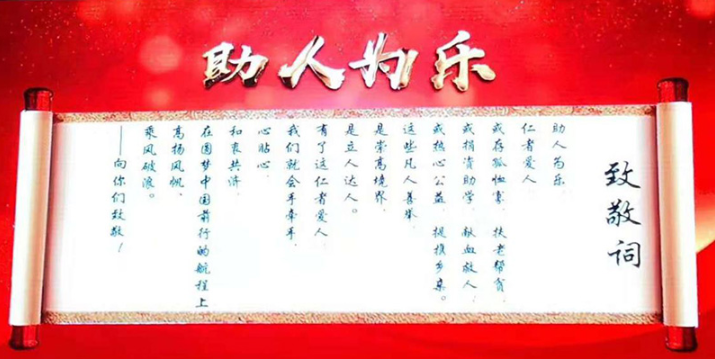 助人为乐
致敬词
助人为乐，
仁者爱人
或存孤恤寡，扶老帮贫，
或捐资助学，献血救人，
或热心公益，提携乡梓。
这些凡人善举，
是崇高境界，
是立人达人。
有了这仁者爱人，
我们就会手牵手，
心贴心，
和衷共济，
在圆梦中国前行的航程上
高扬风帆，
乘风破浪。
——向你们致敬！